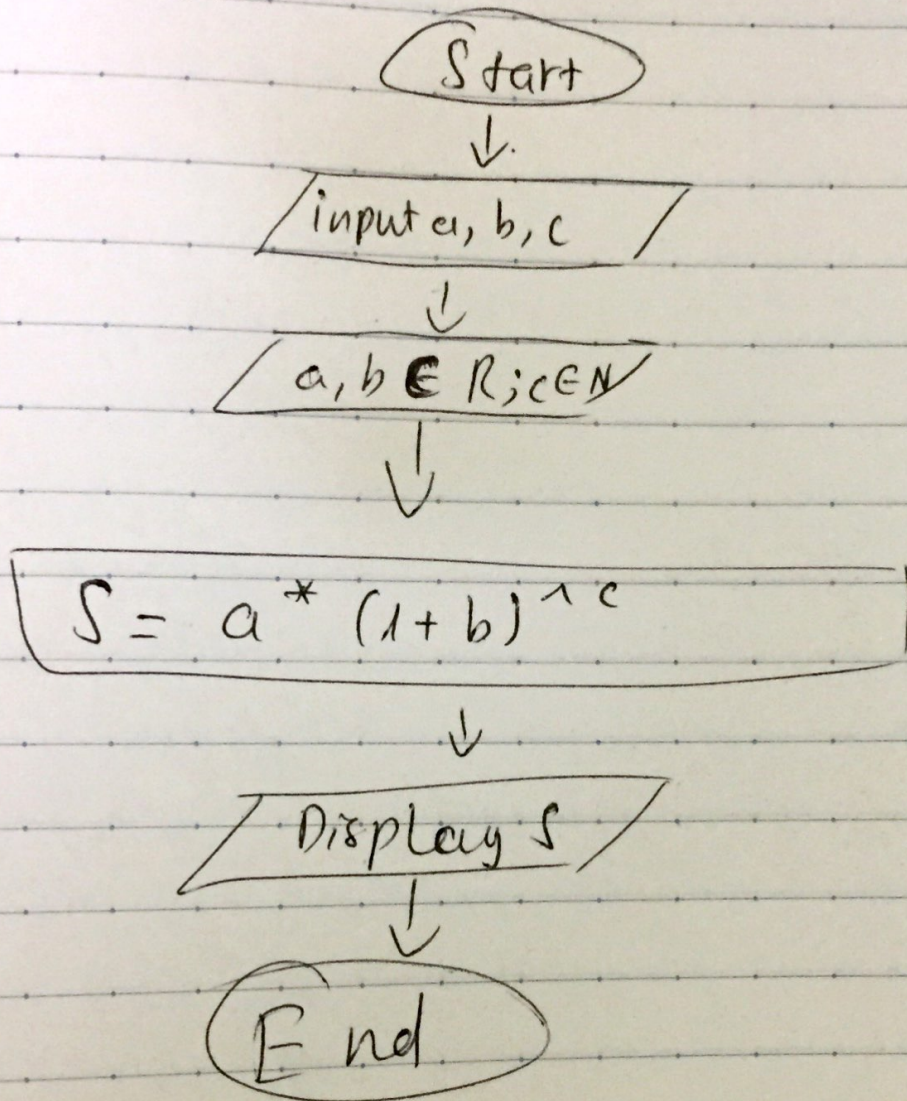 Start
input a, b, c
a, b ∈ R; c ∈ N
S = a * (1 + b) ^ c
Display S
End